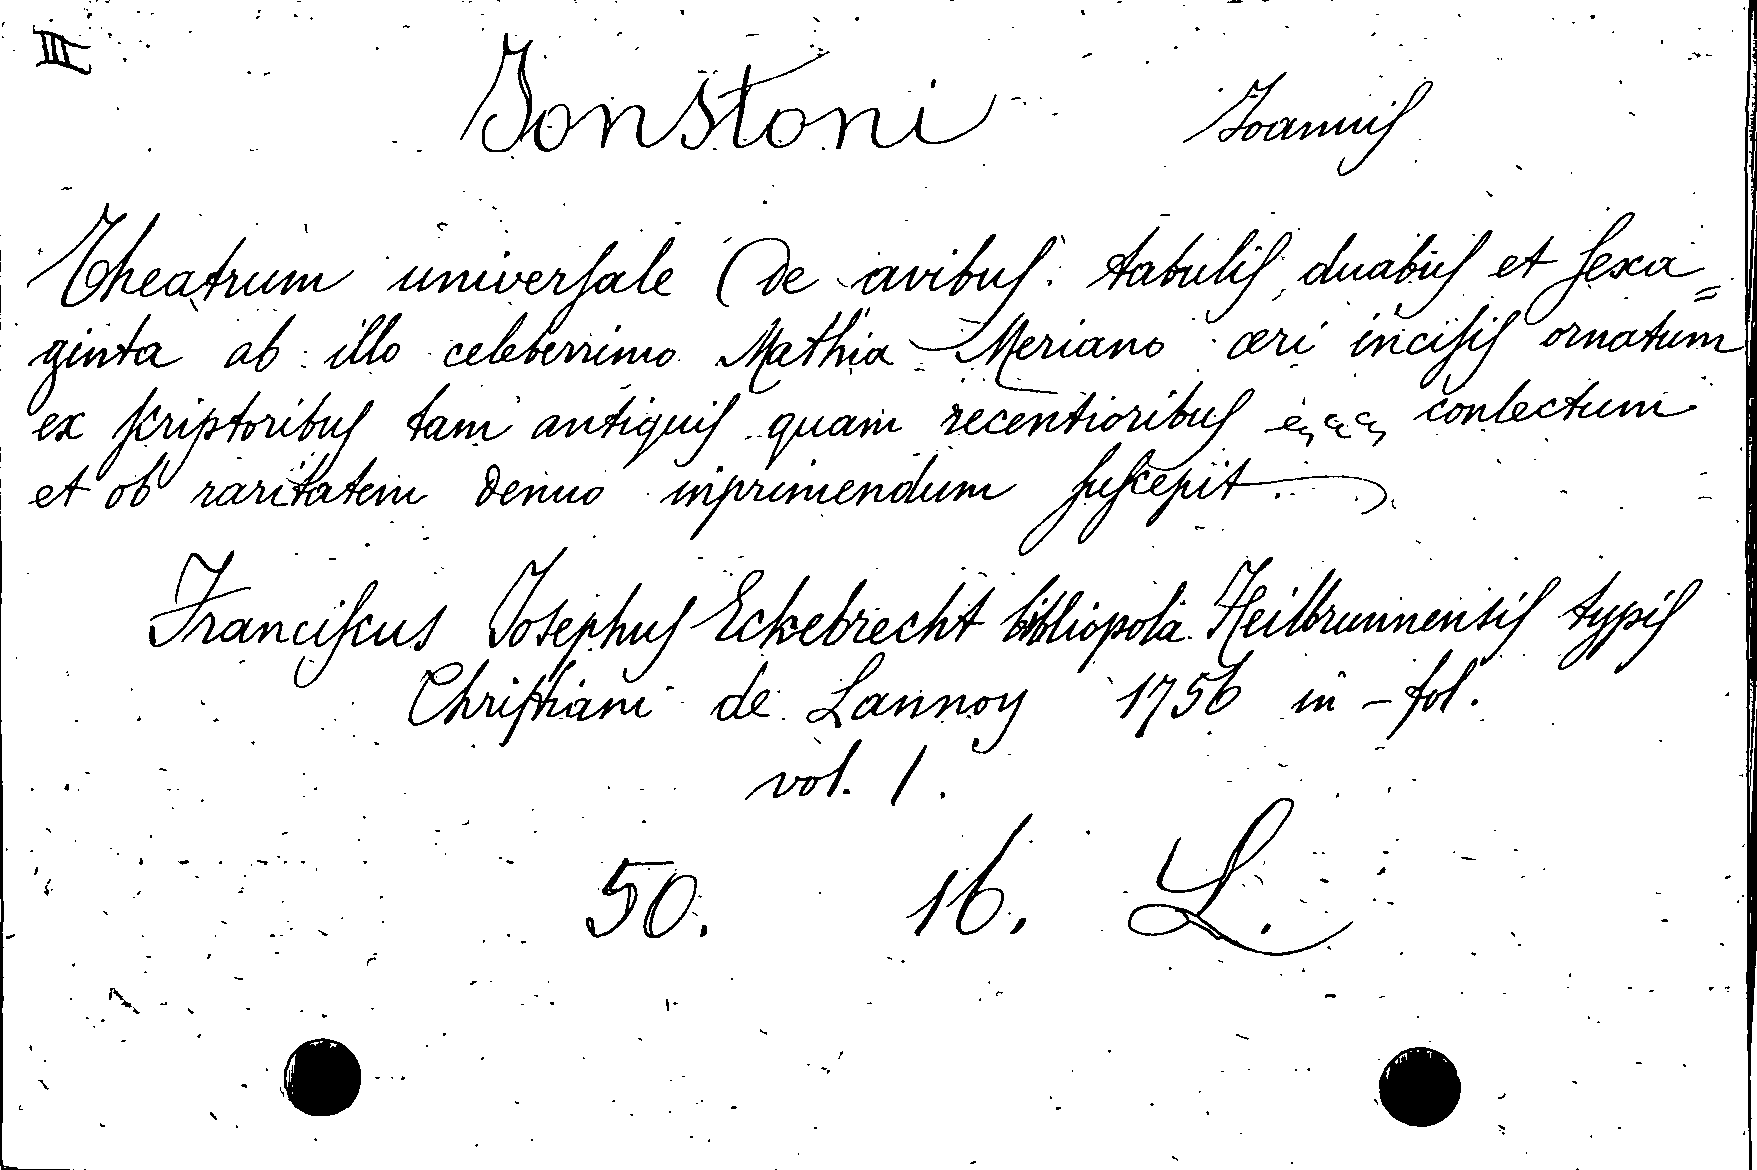 III
Jonstoni Joannis
Theatrum universale (de avibus. tabulis duabus et sexa=
ginta ab illo celeberrimo Mathia Meriano æri incisis ornatum
ex scriptoribus tam antiquis quam recentioribus conlectum
et ob raritatem denuo inprimendum suscepit.
Franciscus Josephus Eckebrecht bibliopola Heilbrunnensis typis
Christiani de Lannoy 1756 in-fol.
vol. 1.
50. 16. L.